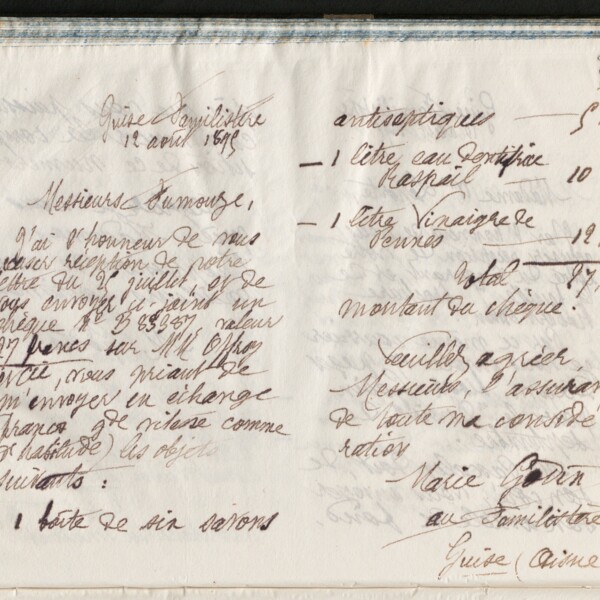 Guise Familistère
12 août 1895
Messieurs Fumouze,
J'ai l'honneur de vous
accuser réception de votre
lettre du 25 juillet, et de
vous envoyer ci-joint un
chèque N° 385387 valeur
27 francs sur MM Offroy
et Cie, vous priant de
m'envoyer en échange
(franco gde vitesse comme
d'habitude) les objets
suivants :
1 boîte de six savons
antiseptiques — 5
— 1 litre eau dentifrice
Raspail — 10
— 1 litre Vinaigre de
Pennès — 12
Total 27,
montant du chèque.
Veuillez agréer,
Messieurs, l'assuran
de toute ma considé
ration
Marie Godin
au Familistère
Guise (Aisne